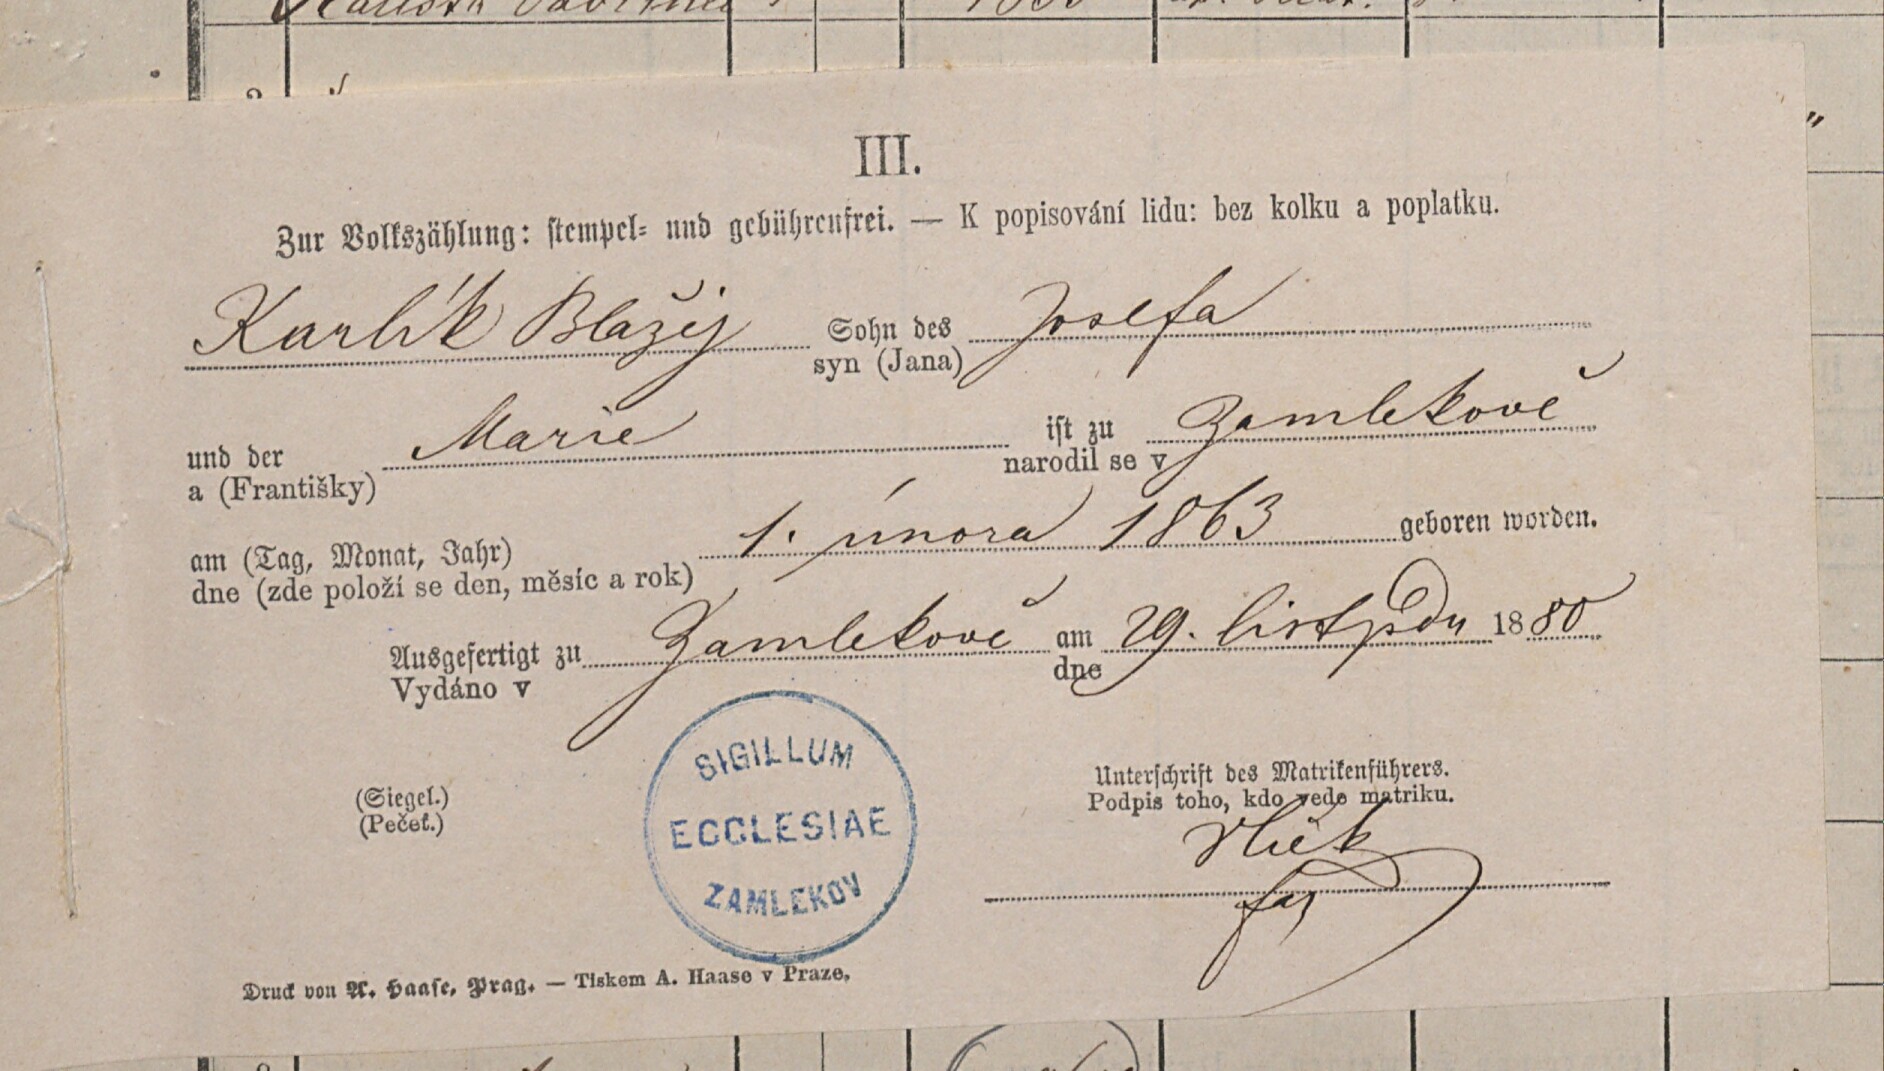 III.
Zur Volkszählung: stempel- und gebührenfrei. — K popisování lidu: bez kolku a poplatku.
Karlík Blažej Sohn des Josefa
syn (Jana)
und der Marie ist zu Zamlekově
a (Františky) narodil se v
am (Tag, Monat, Jahr) 1. února 1863 geboren worden.
dne (zde položí se den, měsíc a rok)
Ausgefertigt zu Zamlekově am 29. listopadu 1880
Vydáno v dne
SIGILLUM
ECCLESIAE
ZAMLEKOV
(Siegel.)
(Pečeť.)
Unterschrift des Matrikenführers.
Podpis toho, kdo vede matriku.
Vlček
Druck von A. Haase, Prag. — Tiskem A. Haase v Praze.